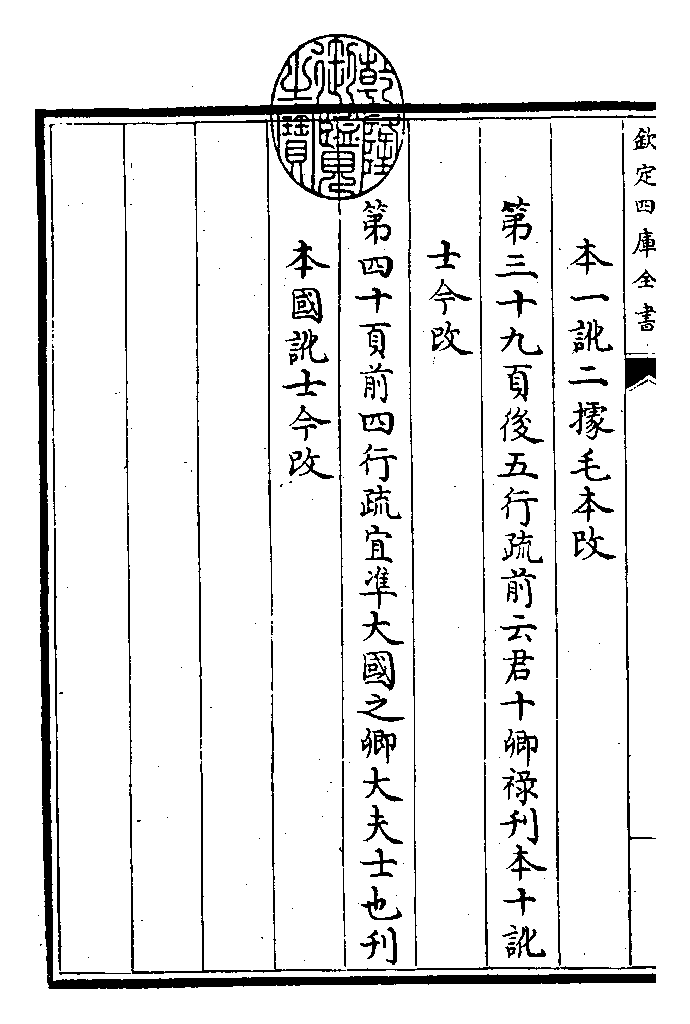 欽定四庫全書
本一訛二據毛本改
第三十九頁後五行疏前云君十卿祿刋本十訛
士今改
第四十頁前四行疏宜準大國之卿大夫士也刋
本國訛士今改
乾隆御覽之寶